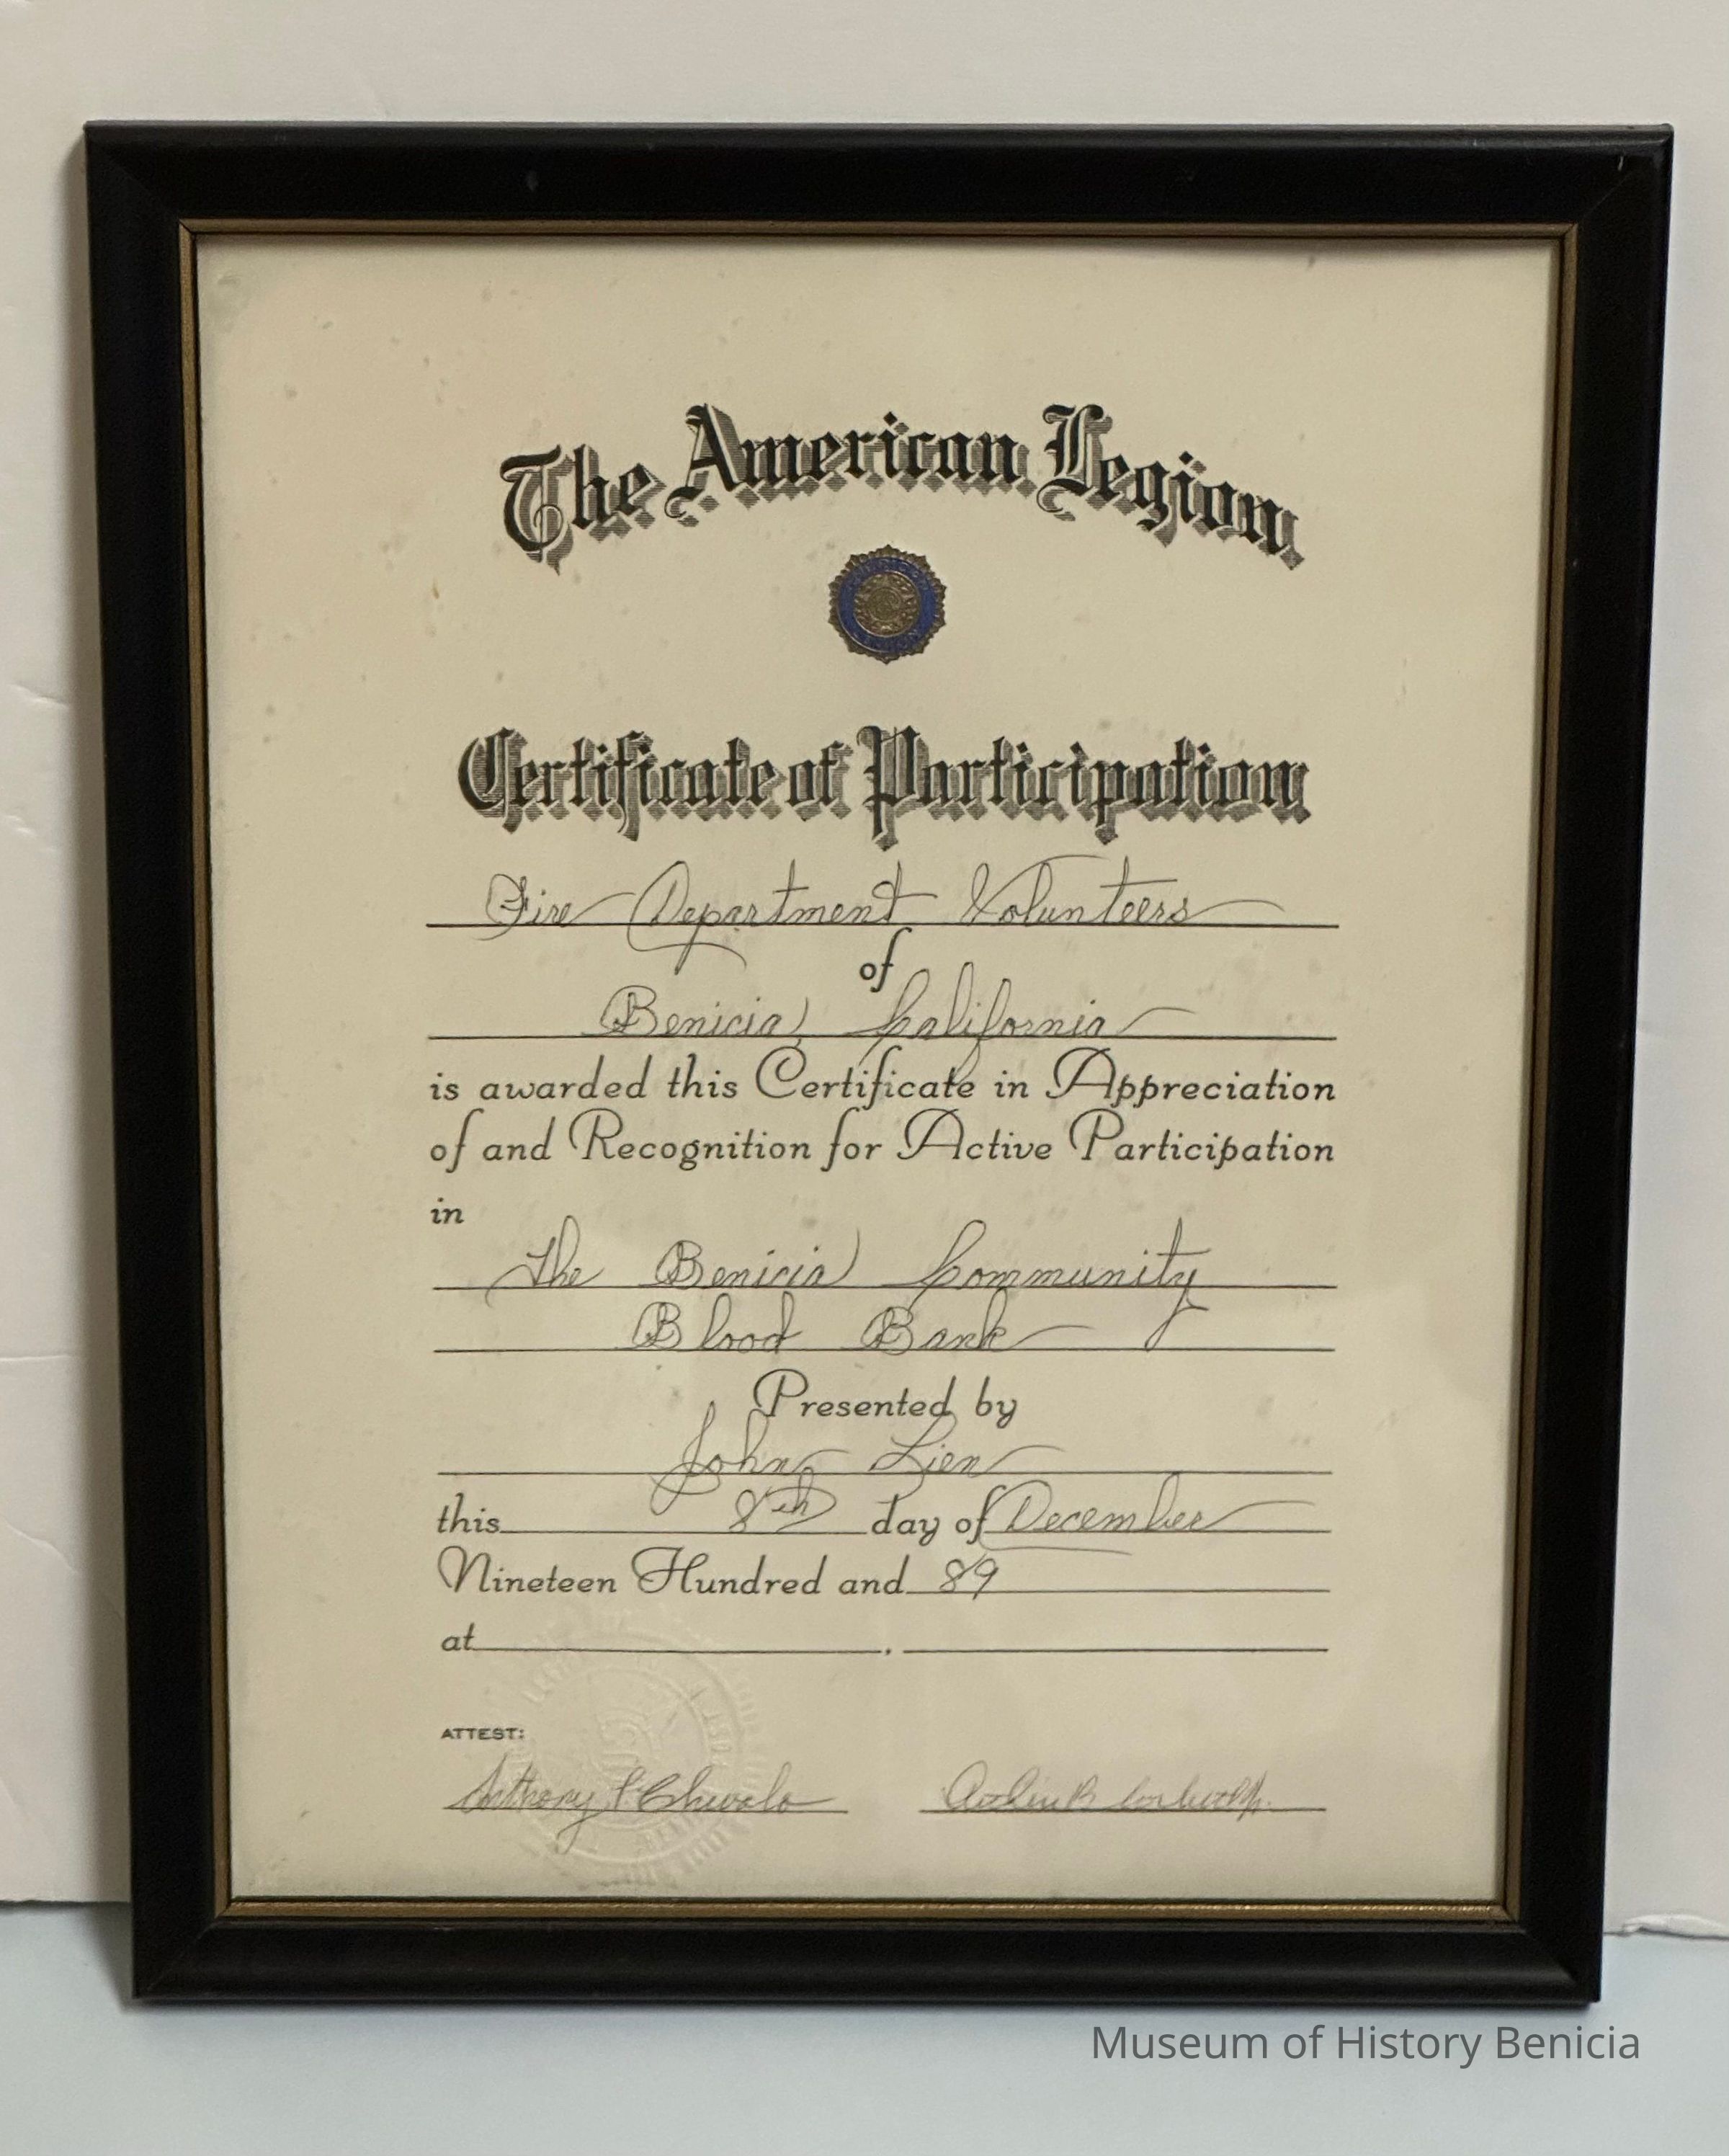 The American Legion
AMERICAN
LEGION
Certificate of Participation
Fire Department Volunteers
of
Benicia, California
is awarded this Certificate in Appreciation
of and Recognition for Active Participation
in
The Benicia Community
Blood Bank
Presented by
John Lien
this 8th day of December
Nineteen Hundred and 89
at ,
ATTEST:
Anthony P Chevalo
Museum of History Benicia